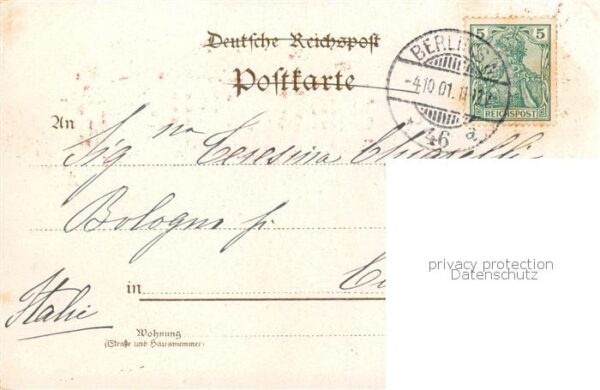 Deutsche Reichspost
Postkarte
5 5
REICHSPOST
BERLIN S.W.
-4.10.01. 11-12V
* 46 a.
An
Sig na Teresina
Bologna pr.
in
Italie
Wohnung
(Straße und Hausnummer)
privacy protection
Datenschutz